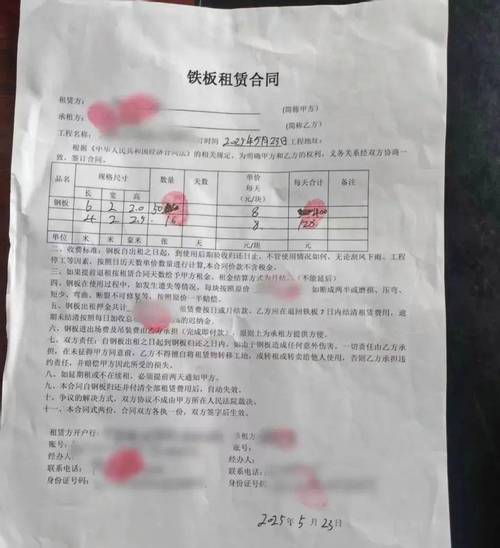 铁板租赁合同
租赁方： （简称甲方）
承租方： （简称乙方）
工程名称： 时间 2025年5月23日 工程地址：
根据《中华人民共和国经济合同法》的相关规定，为明确甲方和乙方的权利、义务关系经双方协商一
致，签订合同。
品名 规格尺寸 数量 天数 单价 每天 （元/块） 每天合计 备注
长 宽 高
钢板 6 2 2.0 50 8 400
4 2 2.0 16 8 128
单位 米 米 毫米 张 天 元/块 元
二、收费标准：钢板自出租之日起，到使用后期验收归还止，不管使用情况如何、无论刮风下雨、工程
停工等因素，按照日历天数单价数量进行计算，本合同价款不含税金。
三、如果提前退租按租赁合同天数给予甲方租金。租金结算方式为月结（不能延后）
四、钢板在使用过程中，如发生遗失等情况，每块按照原价 如断成两半或磨损、压弯、
短少、弯曲、断裂不可修复等，按照原价一半赔偿。
五、钢板出租押金共计 租赁费按日或月结款。乙方应在退回铁板7日内结清租赁费用，逾
期未结清按照每日加收总 的迟纳金。
六、钢板进出场费及吊装费由乙方承担（完成即付款），原则上为承租方提供方便。
七、双方责任：自钢板出租之日起到钢板归还之日内，如由于钢板造成任何意外伤害，一切责任由乙方承
担。在未征得甲方同意前，乙方不得擅自将租赁物转移工地，或转租或转卖给他人使用，否则乙方承担违
约责任，并赔偿甲方因此所受的损失。
八、如延期租或不在续租，必须提前两天通知甲方。
九、本合同自钢板归还并付清全部租赁费用后，自动失效。
十、争议的解决方式，双方协议不成由甲方所在人民法院裁决。
十一、本合同式两份，合同双方各执一份，双方签字后生效。
租赁方开户行： 承租方
账号： 账号：
经办人： 经办人：
联系电话： 联系电话：
身份证号码： 身份证号
2025年5月23日